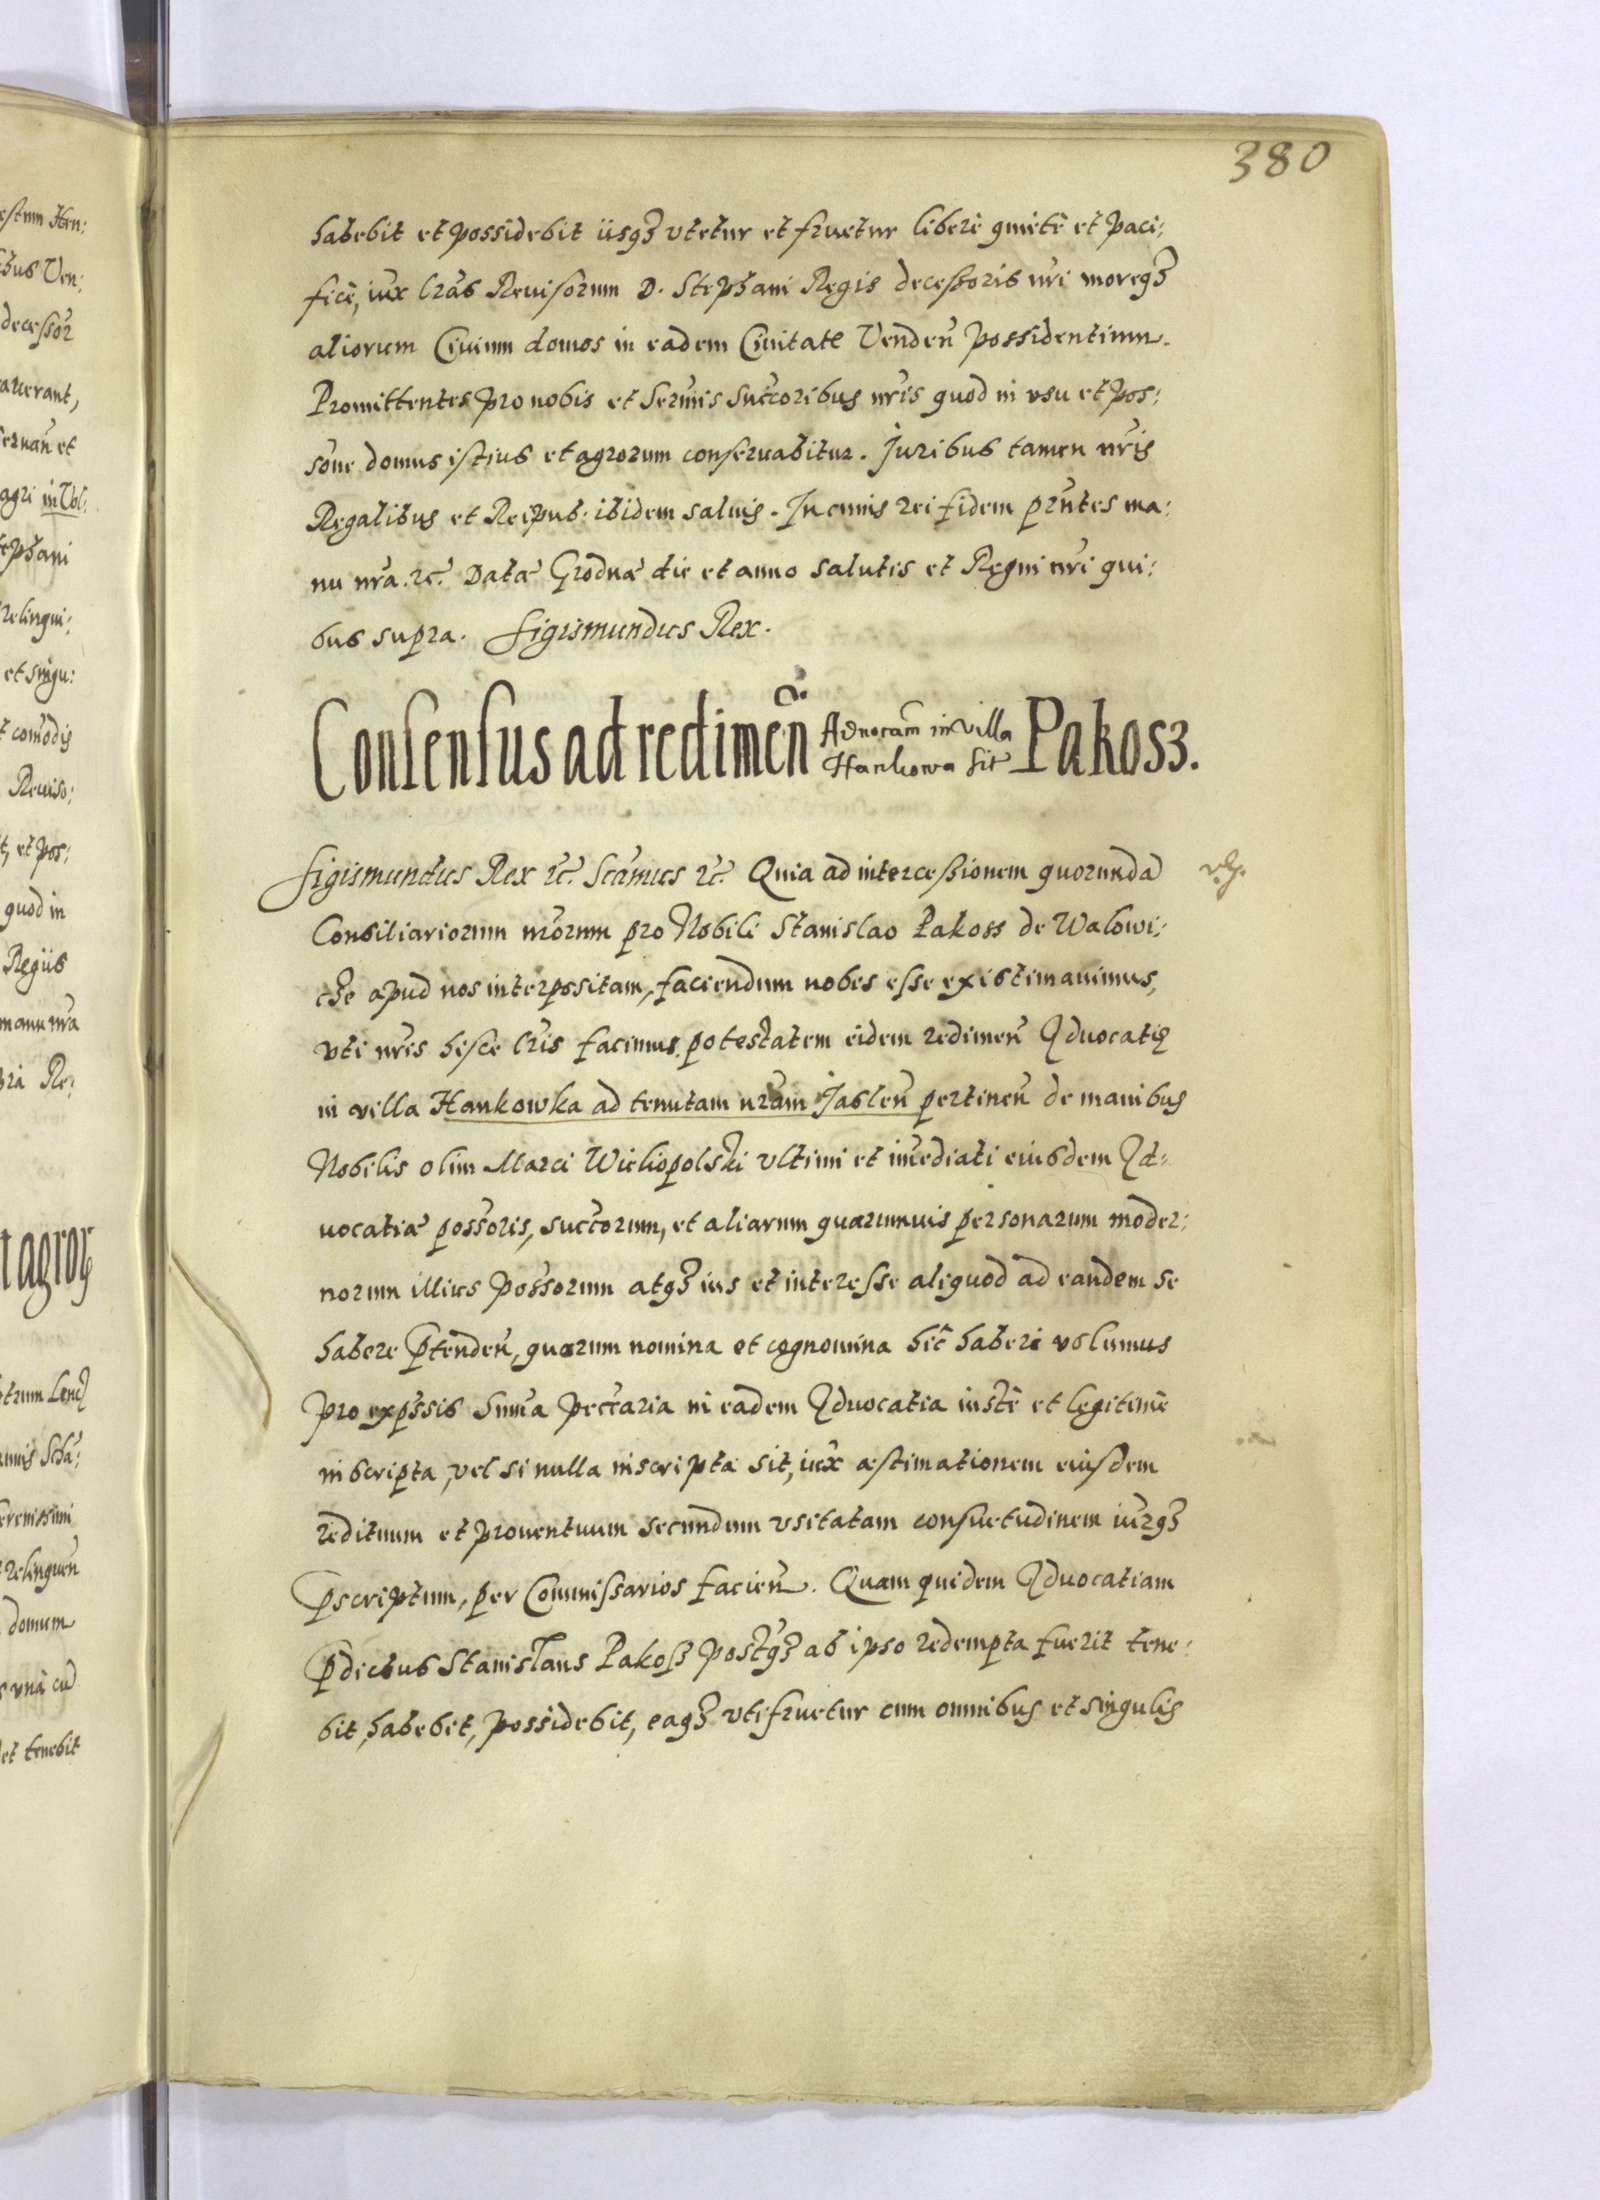 380
habebit et possidebit iisq3 vtetur et fruetur liberè quietè et paci:
ficè, iux lrãs Reuisorum D. Stephani Regis decessoris nri moreq3
aliorum Ciuium domos in eadem Ciuitate Venden possidentium.
Promittentes pro nobis et Sermis Succoribus nris quod in vsu et pos:
sone domus istius et agrorum conseruabitur. Juribus tamen nris
Regalibus et Reipub. ibidem saluis. In cuius rei fidem prntes ma:
nu nra. rc. Datæ Grodnæ die et anno salutis et Regni nri qui:
bus supra. Sigismundus Rex.
Consensus ad redimen Aduocam in villa Hankowa sit Pakosz.
Sigismundus Rex rc. Scamus rc. Quia ad intercessionem quorunda
Consiliariorum nrorum pro Nobili Stanislao Pakoss de Walowi:
che apud nos interpositam, faciendum nobis esse existimauimus,
vti nris hisce lris facimus potestatem eidem redimen Aduocatiæ
in villa Hankowka ad tenutam nram Jaslen pertinen de manibus
Nobilis olim Marci Wielopolski vltimi et imediati eiusdem Ad:
uocatiæ possoris, succorum, et aliarum quarumuis personarum moder:
norum illius possorum atq3 ius et interesse aliquod ad eandem se
habere ptenden, quarum nomina et cognomina hic haberi volumus
pro expssis Suma pecraria in eadem Aduocatia iustè et legitimè
inscripta, vel si nulla inscripta sit, iux æstimationem eiusdem
redituum et prouentuum secundum vsitatam consuetudinem iurq3
pscriptum, per Commissarios facien. Quam quidem Aduocatiam
pdictus Stanislaus Pakosz postq3 ab ipso redempta fuerit tene:
bit, habebit, possidebit, eaq3 vtifruetur cum omnibus et singulis